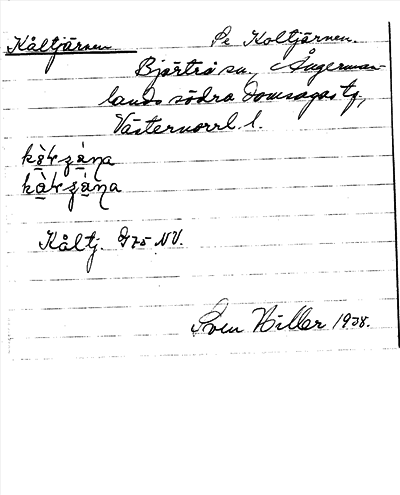 Kåltjärnen Se Koltjärnen.
Bjärtrå sn., Ångerman-
lands södra domsagas tg,
Västernorrl. l.
Kåltj. G75 NV.
Sven Hiller 1938.